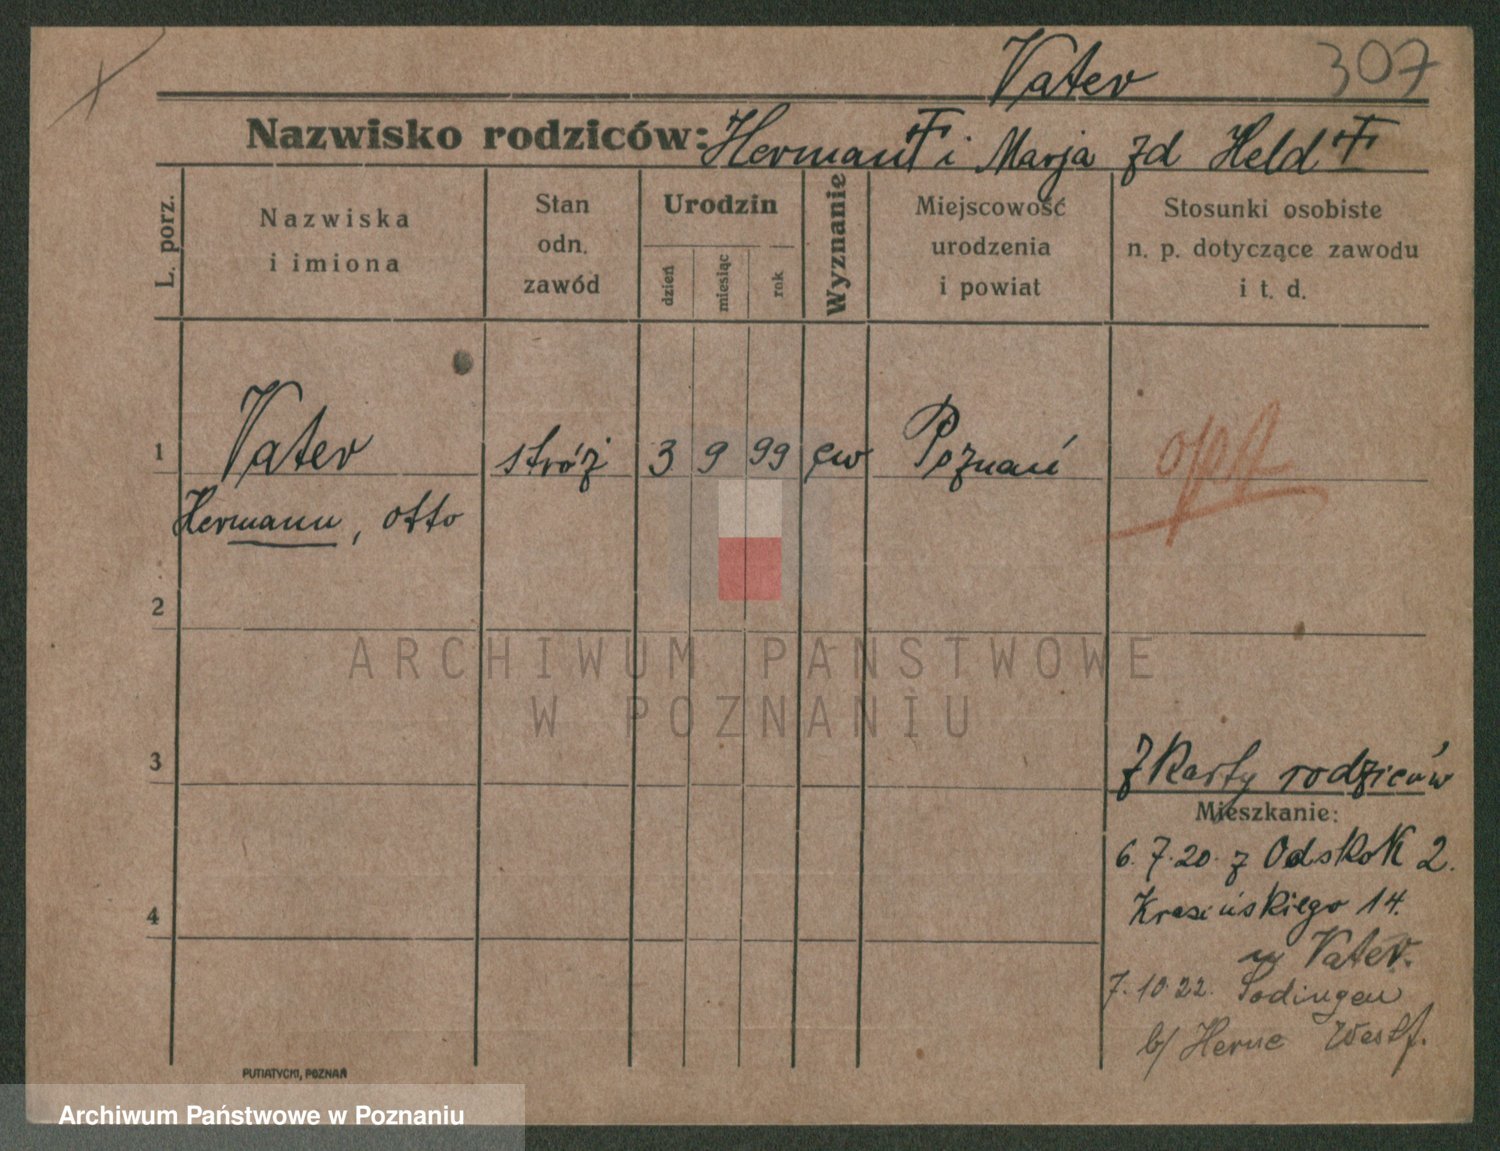 Vater 307
Nazwisko rodziców: Hermann i Marja zd Held
L. porz.
Nazwiska
i imiona
Stan
odn.
zawód
Urodzin
dzień
miesiąc
rok
Wyznanie
Miejscowość
urodzenia
i powiat
Stosunki osobiste
n. p. dotyczące zawodu
i t. d.
1 Vater stróż 3 9 99 ew Poznań
Hermann, Otto
2
3
4
z Karty rodziców
Mieszkanie:
6.7.20. z Odskok 2.
Krasińskiego 14.
Vater.
7.10.22. Sodingen
b/ Herne Westf.
PUTIATYCKI, POZNAŃ
ARCHIWUM PAŃSTWOWE
W POZNANIU
Archiwum Państwowe w Poznaniu